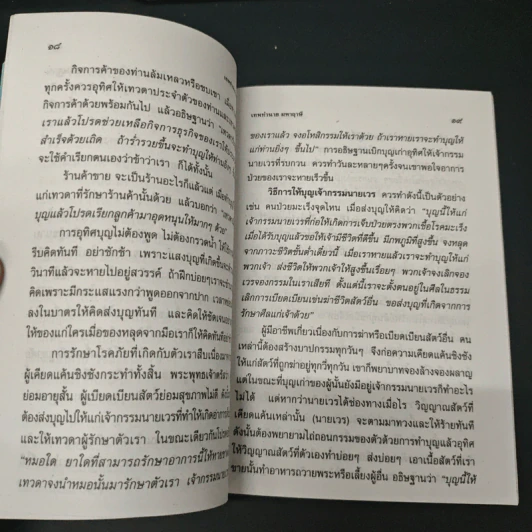 ๑๘
กิจการค้าของท่านล้มเหลวหรือซบเซา
ทุกครั้งควรอุทิศให้เทวดาประจำตัวของท่านและ
กิจการค้าด้วยพร้อมกันไป แล้วอธิษฐานว่า
เราแล้วโปรดช่วยเหลือกิจการธุรกิจของเราให้
สำเร็จด้วยเถิด ถ้าร่ำรวยขึ้นจะทำบุญให้ท่าน
จะใช้คำเรียกตนเองว่าข้าว่าเรา ก็ได้ทั้งนั้น
ร้านค้าขาย จะเป็นร้านอะไรก็แล้วแต่
แก่เทวดาที่รักษาร้านค้านั้นด้วย แล้วบอกว่า
บุญแล้วโปรดเรียกลูกค้ามาอุดหนุนให้มากๆ ด้วย"
การอุทิศบุญไม่ต้องพูด ไม่ต้องกรวดน้ำ
รีบคิดทันที อย่าชักช้า เพราะแสงบุญที่เกิดขึ้น
วินาทีแล้วจะหายไปอยู่สวรรค์ ถ้าฝึกบ่อยๆเราจะ
คิดเพราะมีกระแสแรงกว่าพูดออกจากปาก
ลงในบาตรให้คิดส่งบุญทันที และคิดให้ชัดเจน
ให้ของแก่ใครเมื่อของหลุดจากมือเราก็ให้คิดทันที
การรักษาโรคภัยที่เกิดกับตัวเราสืบเนื่อง
ผู้เคียดแค้นชิงชังกระทำทั้งสิ้น พระพุทธเจ้าตรัส
ย่อมอายุสั้น ผู้เบียดเบียนสัตว์ย่อมสุขภาพไม่ดี
ต้องส่งบุญไปให้แก่เจ้ากรรมนายเวรที่ทำให้เกิดอาการ
และให้เทวดาผู้รักษาตัวเรา ในขณะเดียวกันก็
"หมอใด ยาใดที่สามารถรักษาอาการนี้ให้หาย
เทวดาจงนำหมอนั้นมารักษาตัวเรา เจ้ากรรมนาย
เทพทำนาด มหาฤาษี ๑๙
ของเราแล้ว จงอโหสิกรรมให้เราด้วย ถ้าเราหายเราจะทำบุญให้
แก่ท่านยิ่งๆ ขึ้นไป" การอธิษฐานเบิกบุญเก่าอุทิศให้เจ้ากรรม
นายเวรที่รบกวน ควรทำวันละหลายๆครั้งจนเขาพอใจอาการ
ป่วยของเราจะหายเร็วขึ้น
วิธีการให้บุญเจ้ากรรมนายเวร ควรทำดังนี้เป็นตัวอย่าง
เช่น คนป่วยมะเร็งจุดไหน เมื่อส่งบุญให้คิดว่า "บุญนี้ให้แก่
เจ้ากรรมนายเวรที่ก่อให้เกิดการเจ็บป่วยตรงพวกเชื้อโรคมะเร็ง
เมื่อได้รับบุญแล้วขอให้เจ้ามีชีวิตที่ดีขึ้น มีภพภูมิที่สูงขึ้น จงหลุด
จากภาวะชีวิตขั้นต่ำเดี๋ยวนี้ เมื่อเราหายแล้วเราจะทำบุญให้แก่
พวกเจ้า ส่งชีวิตให้พวกเจ้าให้สูงขึ้นเรื่อยๆ พวกเจ้าจงเลิกจอง
เวรจองกรรมในเราเสียที ตั้งแต่นี้เราจะตั้งตนอยู่ในศีลในธรรม
เลิกการเบียดเบียนเข่นฆ่าชีวิตสัตว์อื่น ขอส่งบุญที่เกิดจากการ
รักษาศีลแก่เจ้าด้วย"
ผู้มีอาชีพเกี่ยวเนื่องกับการฆ่าหรือเบียดเบียนสัตว์อื่น คน
เหล่านี้ต้องสร้างบาปกรรมทุกๆวัน จึงก่อความเคียดแค้นชิงชัง
ให้แก่สัตว์ที่ถูกฆ่าอยู่ทุกวี่ทุกวัน เขาก็พยาบาทจองล้างจองผลาญ
แต่ในขณะที่บุญเก่าของผู้นั้นยังมีอยู่เจ้ากรรมนายเวรก็ทำอะไร
ไม่ได้ แต่หากว่าเจ้ากรรมนายเวรได้ช่องทางเมื่อไร วิญญาณสัตว์ที่
เคียดแค้นเหล่านั้น (นายเวร) จะตามมาทวงและให้ร้ายทันที
ดังนั้นต้องพยายามไถ่ถอนกรรมของตัวด้วยการทำบุญแล้วอุทิศ
ให้วิญญาณสัตว์ที่ตัวเองทำบ่อยๆ ส่งบ่อยๆ เอาเนื้อสัตว์ที่เรา
ขายนั้นทำอาหารถวายพระหรือเลี้ยงผู้อื่น อธิษฐานว่า "บุญนี้ให้